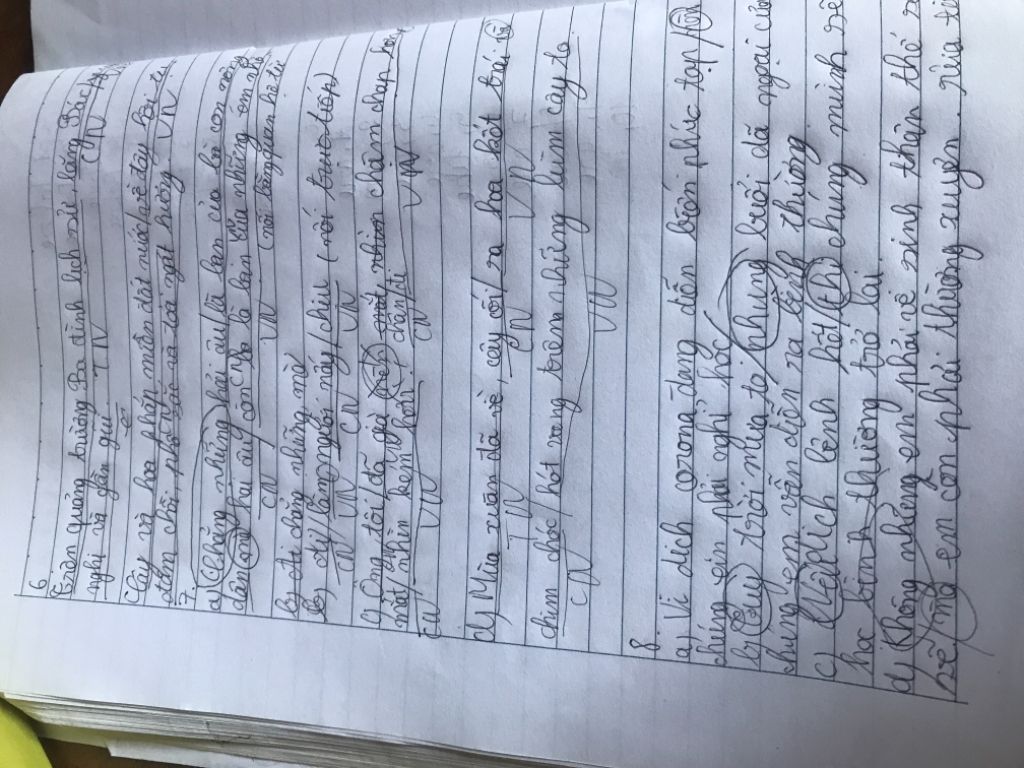 6
Trên quảng trường Ba đình lịch sử, lăng Bác
nghi và gần gũi TN CN VN
Cây và hoa khắp miền đất nước / về tây hội tụ
đâm chồi, phô sắc và toả ngát hương VN
7
a) Chẳng những hải âu / là bạn của bà con nông
dân mà hải âu / còn là bạn của những em nhỏ
CN VN CN VN (nối bằng quan hệ từ)
b) đi dẳng nhưng mà
b, ai / làm, người nấy / chịu (nối trực tiếp)
CN VN CN VN
c) Ông tôi / đã già nên chân / đi chậm chạp hơn,
mắt / nhìn kém hơn CN VN
CN VN
d) Mùa xuân đã về, cây cối / ra hoa kết trái và
TN CN VN
chim chóc / hót vang trên những lùm cây to.
CN VN
8.
a) Vì dịch corona đang diễn biến phức tạp / nên
chúng em phải nghỉ học
b) Tuy trời mưa to / nhưng buổi dã ngoại của
chúng em vẫn diễn ra bình thường
c) Nếu dịch bệnh hết / thì chúng mình sẽ
học bình thường trở lại
d) Không những em phải vệ sinh thân thể
sẽ / mà em còn phải thường xuyên rửa